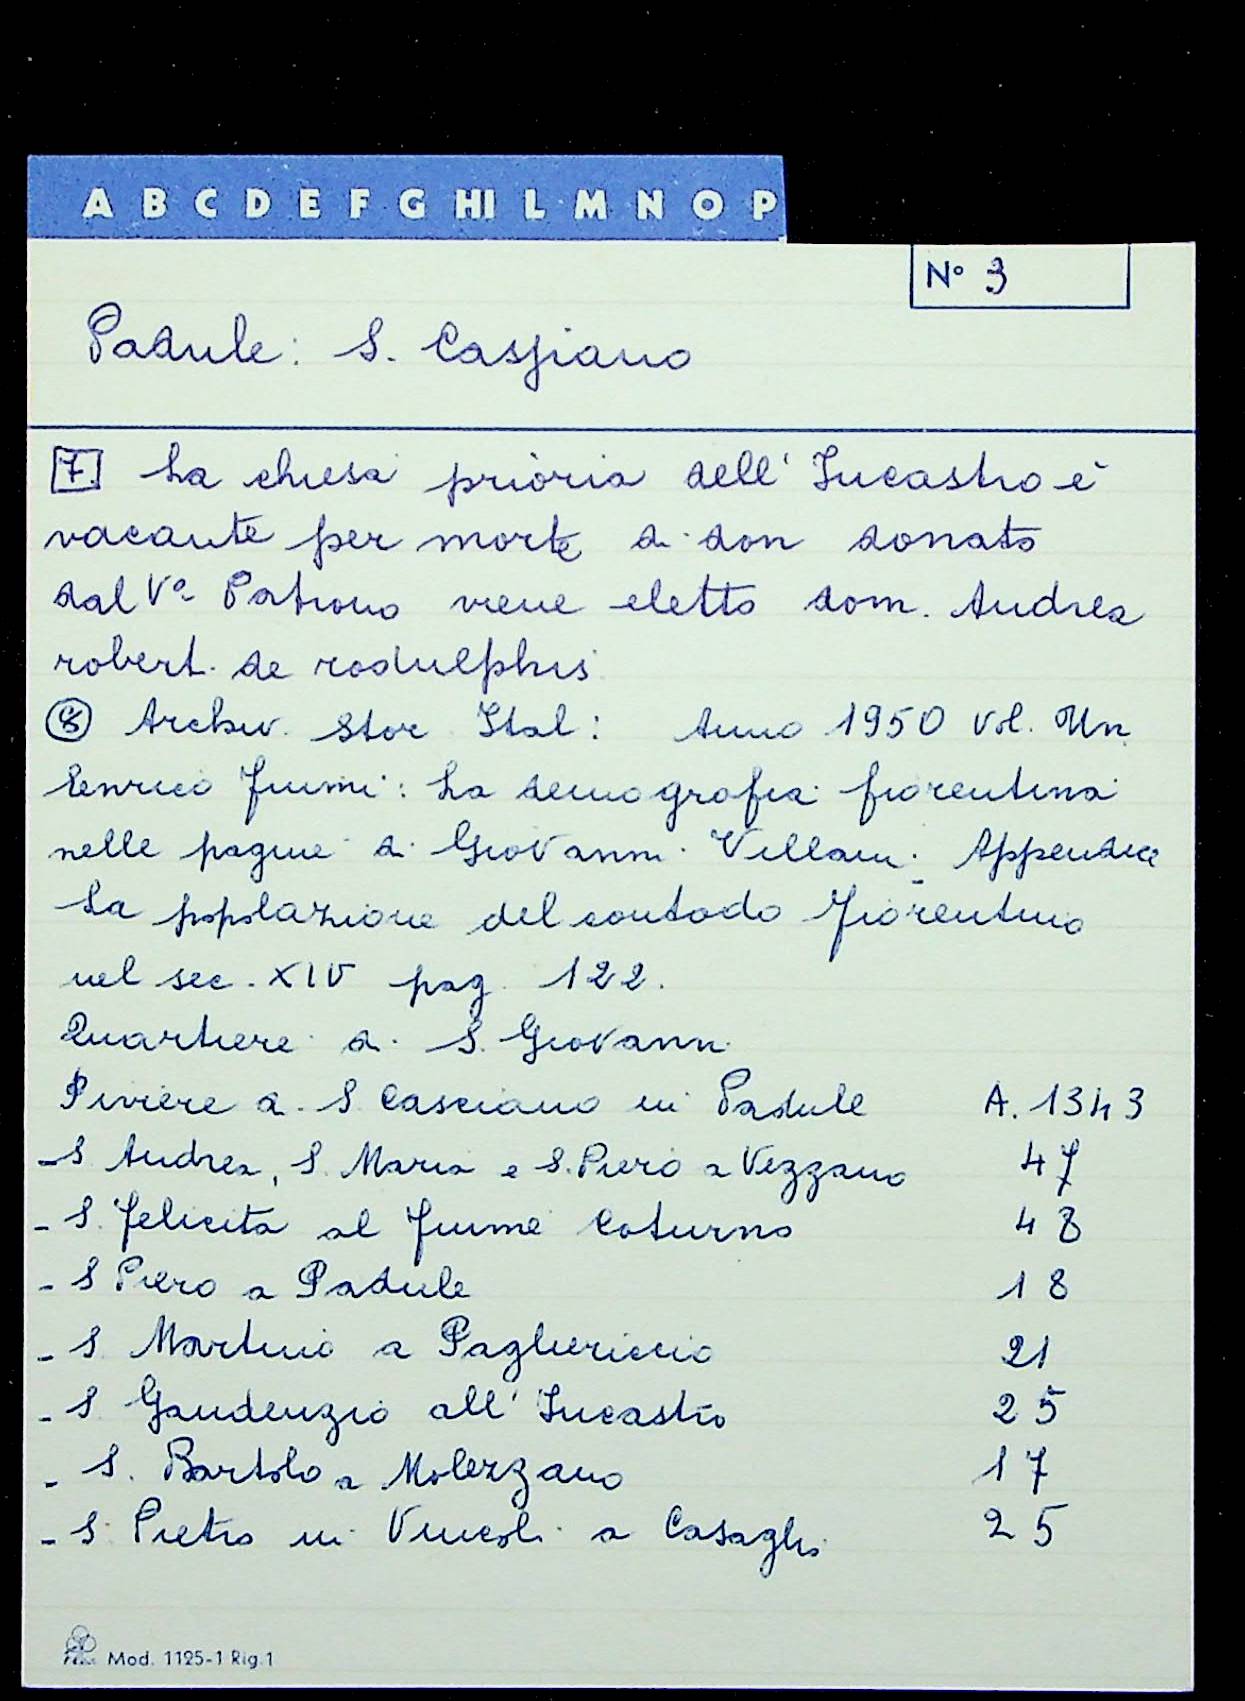 A B C D E F G HI L M N O P
N° 3
Padule: S. Cassiano
7. La chiesa prioria dell' Incastro è
vacante per morte di don donato
dal V° Patrono viene eletto dom. Andrea
robert. de rodulphis
8 Archiv. Stor Ital: Anno 1950 Vol. Un
Enrico Fiumi: La demografia fiorentina
nelle pagine di Giovanni Villani. Appendice
La popolazione del contado Fiorentino
nel sec. XIV pag. 122.
Quartiere di S. Giovanni
Piviere di S Casciano in Padule A. 1343
- S Andrea, S. Maria e S. Piero a Vezzano 47
- S. Felicita al fiume Coturno 48
- S Piero a Padule 18
- S Martino a Pagliericcio 21
- S Gaudenzio all' Incastro 25
- S. Bartolo a Molezzano 17
- S. Pietro in Vincoli a Casaglia 25
Mod. 1125-1 Rig.1